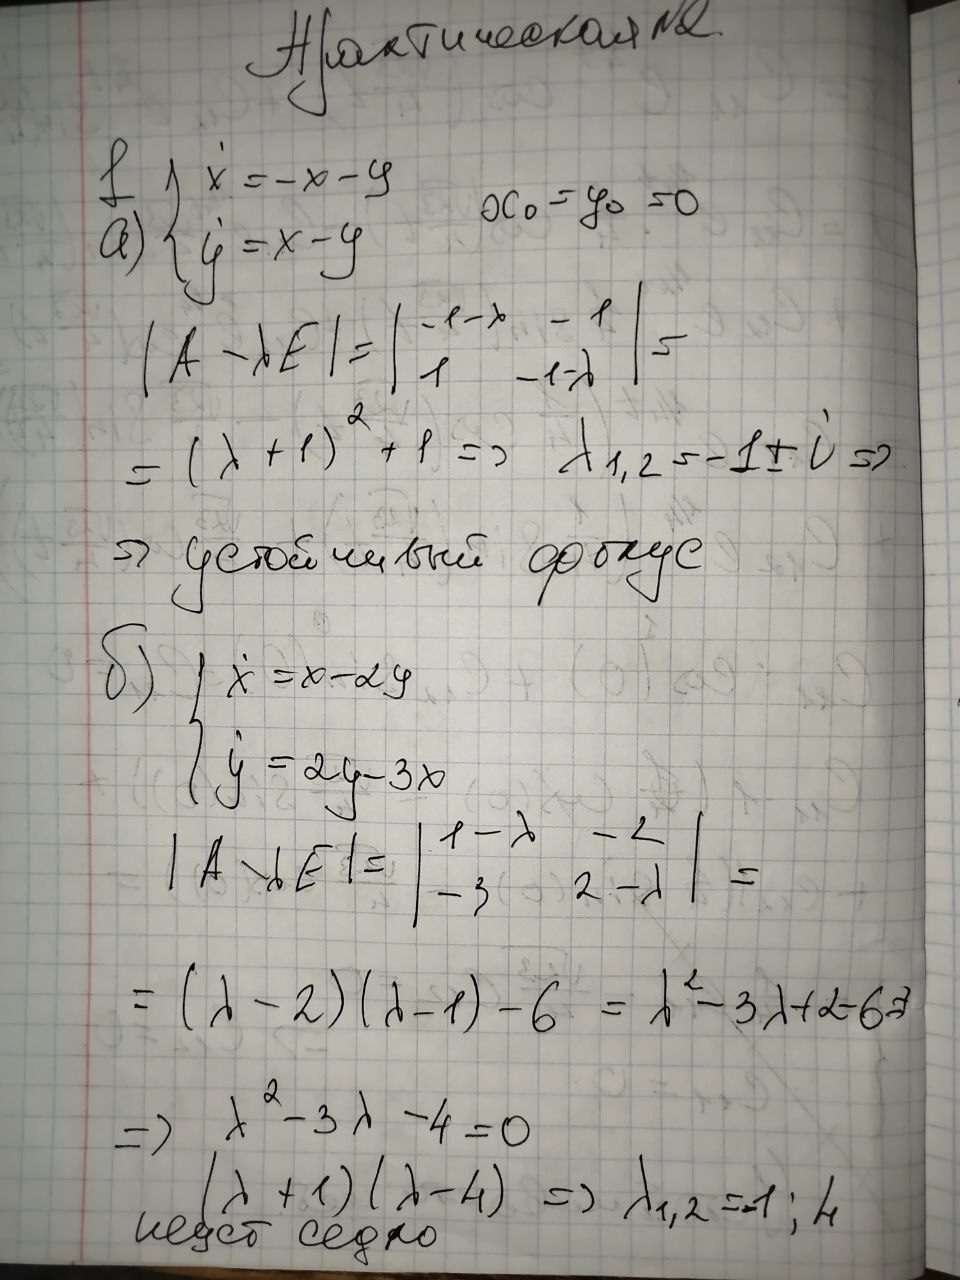 Практическая №2
1 { ẋ = -x - y
а) { ẏ = x - y x₀ = y₀ = 0
|A - λE| = | -1-λ -1 |
| 1 -1-λ | =
= (λ + 1)² + 1 => λ₁,₂ = -1 ± i =>
=> устойчивый фокус
б) { ẋ = x - 2y
{ ẏ = 2y - 3x
|A - λE| = | 1-λ -2 |
| -3 2-λ | =
= (λ - 2)(λ - 1) - 6 = λ² - 3λ + 2 - 6 =>
=> λ² - 3λ - 4 = 0
(λ + 1)(λ - 4) => λ₁,₂ = -1; 4
неуст седло